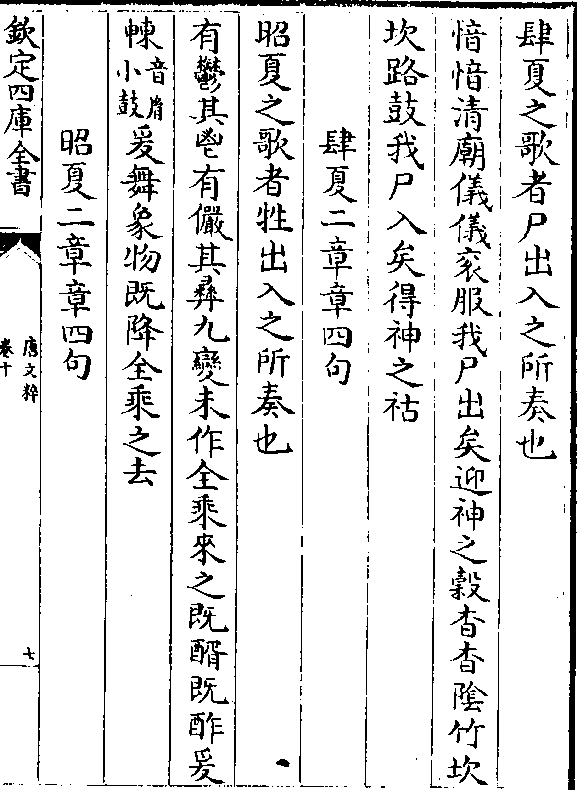 肆夏之歌者尸出入之所奏也
愔愔清廟儀儀衮服我尸出矣迎神之穀杳杳陰竹坎
坎路鼓我尸入矣得神之祜
肆夏二章章四句
昭夏之歌者牲出入之所奏也
有鬱其鬯有儼其彝九變未作全乘來之既醑既酢爰
朄音胤小鼓爰舞象物既降全乘之去
昭夏二章章四句
欽定四庫全書
唐文粹
卷十
七